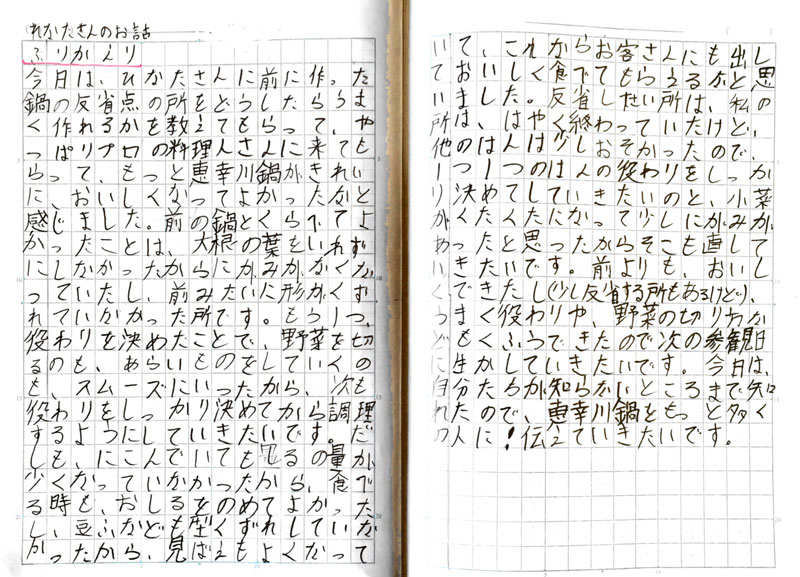 ひなたさんのお話
ふりかえり
今日は、ひなたさんに前に作った
鍋の反省点の所をどうしたらうま
く作れるかを教えてもらって、や
っぱりプロの料理人さんに来ても
らって、もっと恵幸川鍋がきれい
に、おいしくなってよかったなと
感じました。前の鍋とくらべてよ
かったことは、大根の葉をいれず
にしなかったからにがみがなくな
っていたし、前みたいに形がくず
れていなかった所です。もう1つ、
役わりを決めたことで、野菜を切
るのも、あらいものをしていくの
も、スムーズにいったから、次も
役わりをしっかり決めてから調理
するようにしていきたいです。だ
しも、にこんでいてもしるの量が
少くなっていなかったから、食べ
る時も、おしるをのめてよかった
し、豆ふなども型くずれしていな
かったから、見ばえもよくなって
いて、これからお客さんにも出し
ておいしく食べてもらえるなと思
いました。反省したい所は、私の
所は、はやく終わっていたけど、
他のはんは少しおそかったので、
1つ1つのはんの役わりをしっか
り決めてしていきたいのと、小菜
がくたくたになって少しにがみが
あったと思ったからそこも直して
いきたいです。前よりも、おいし
くできたし(少し反省する所もあるけど)、
うまく役わりや、野菜の切りわか
どもくふうできたので次の参観日
に生かしていきたいです。今日は、
自分たちが知らないところまで知
れたので、恵幸川鍋をもっと多く
の人に!伝えていきたいです。